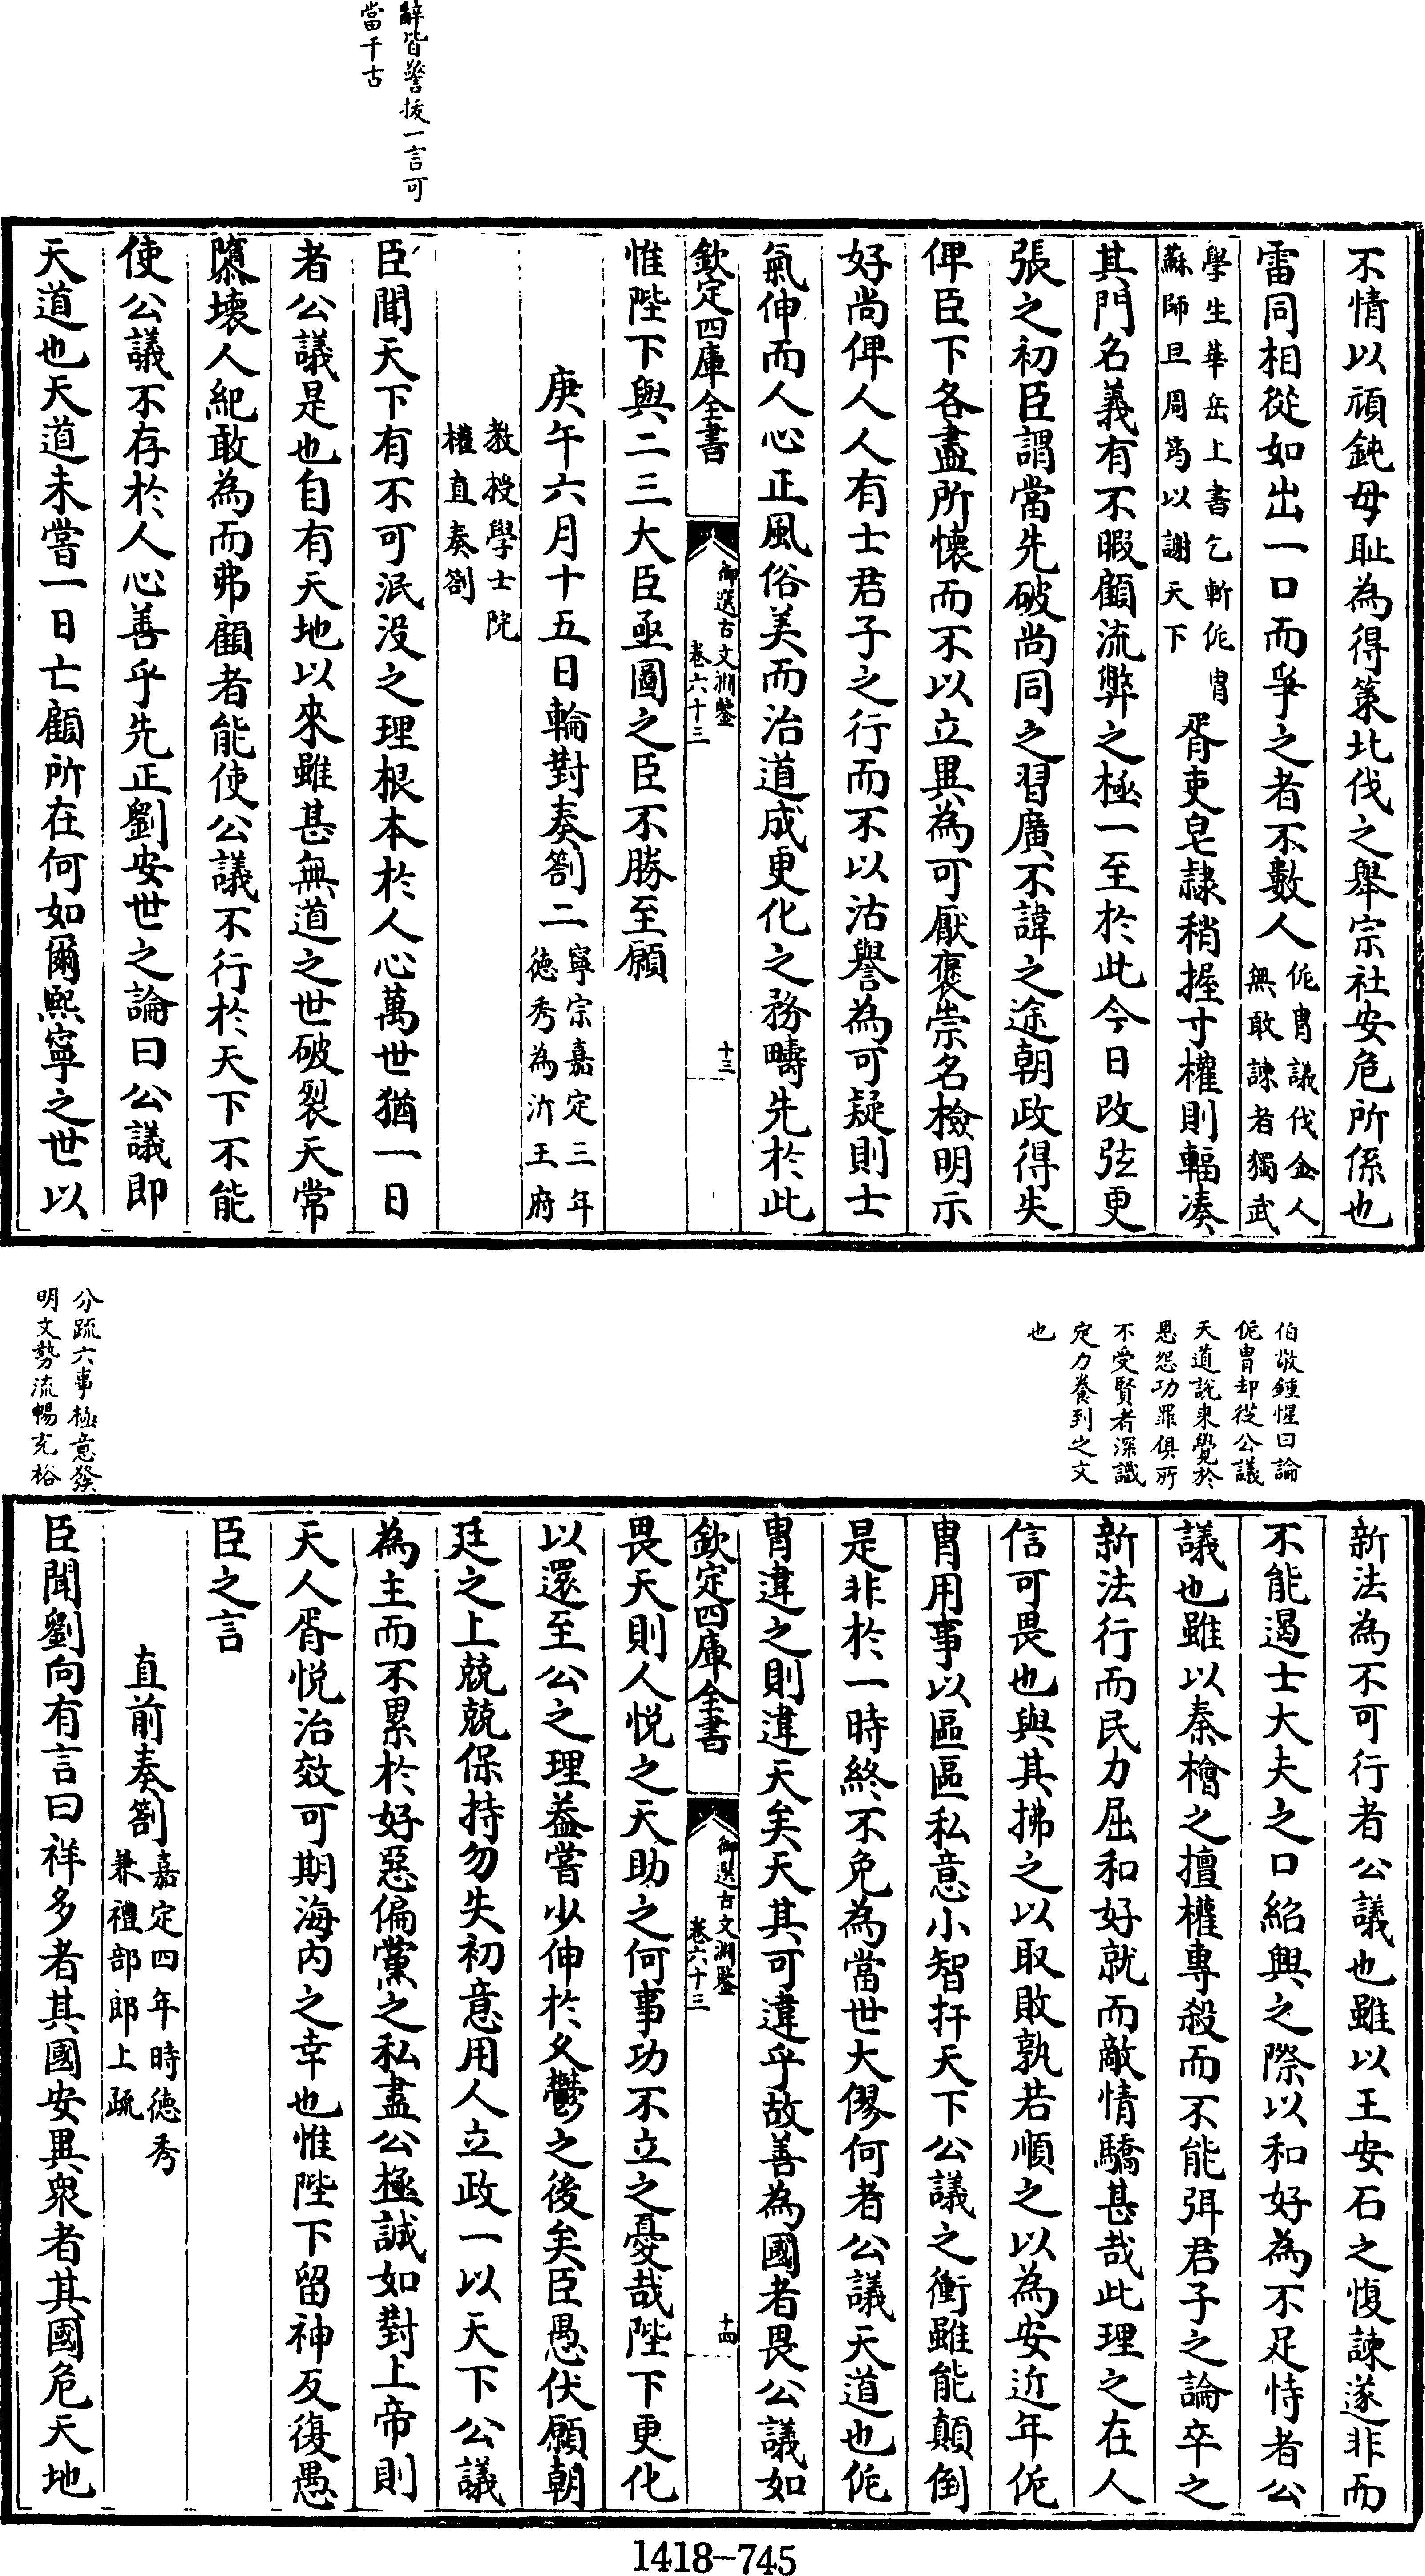 辭皆警拔一言可
當千古
不情以頑鈍毋恥為得策北伐之舉宗社安危所係也
雷同相從如出一口而爭之者不數人侂胄議伐金人
無敢諫者獨武
學生華岳上書乞斬侂胄
蘇師旦周筠以謝天下胥吏皂隷稍握寸權則輻凑
其門名義有不暇顧流弊之極一至於此今日改弦更
張之初臣謂當先破尚同之習廣不諱之途朝政得失
俾臣下各盡所懷而不以立異為可厭褒崇名檢明示
好尚俾人人有士君子之行而不以沽譽為可疑則士
氣伸而人心正風俗美而治道成更化之務疇先於此
欽定四庫全書
御選古文淵鑒
卷六十三
十三
惟陛下與二三大臣亟圖之臣不勝至願
庚午六月十五日輪對奏劄二寧宗嘉定三年
德秀為沂王府
教授學士院
權直奏劄
臣聞天下有不可泯没之理根本於人心萬世猶一日
者公議是也自有天地以來雖甚無道之世破裂天常
隳壞人紀敢為而弗顧者能使公議不行於天下不能
使公議不存於人心善乎先正劉安世之論曰公議即
天道也天道未嘗一日亡顧所在何如爾熙寧之世以
伯敬鍾惺曰論
侂胄却從公議
天道說来覺於
恩怨功罪俱所
不受賢者深識
定力養到之文
也
分疏六事極意發
明文勢流暢尤裕
新法為不可行者公議也雖以王安石之愎諫遂非而
不能遏士大夫之口紹興之際以和好為不足恃者公
議也雖以秦檜之擅權專殺而不能弭君子之論卒之
新法行而民力屈和好就而敵情驕甚哉此理之在人
信可畏也與其拂之以取敗孰若順之以為安近年侂
胄用事以區區私意小智扞天下公議之衝雖能顛倒
是非於一時終不免為當世大僇何者公議天道也侂
胄違之則違天矣天其可違乎故善為國者畏公議如
欽定四庫全書
御選古文淵鑒
卷六十三
十四
畏天則人悅之天助之何事功不立之憂哉陛下更化
以還至公之理葢嘗少伸於久鬱之後矣臣愚伏願朝
廷之上兢兢保持勿失初意用人立政一以天下公議
為主而不累於好惡偏黨之私盡公極誠如對上帝則
天人胥悅治效可期海内之幸也惟陛下留神反復愚
臣之言
直前奏劄嘉定四年時德秀
兼禮部郎上疏
臣聞劉向有言曰祥多者其國安異衆者其國危天地
1418-745